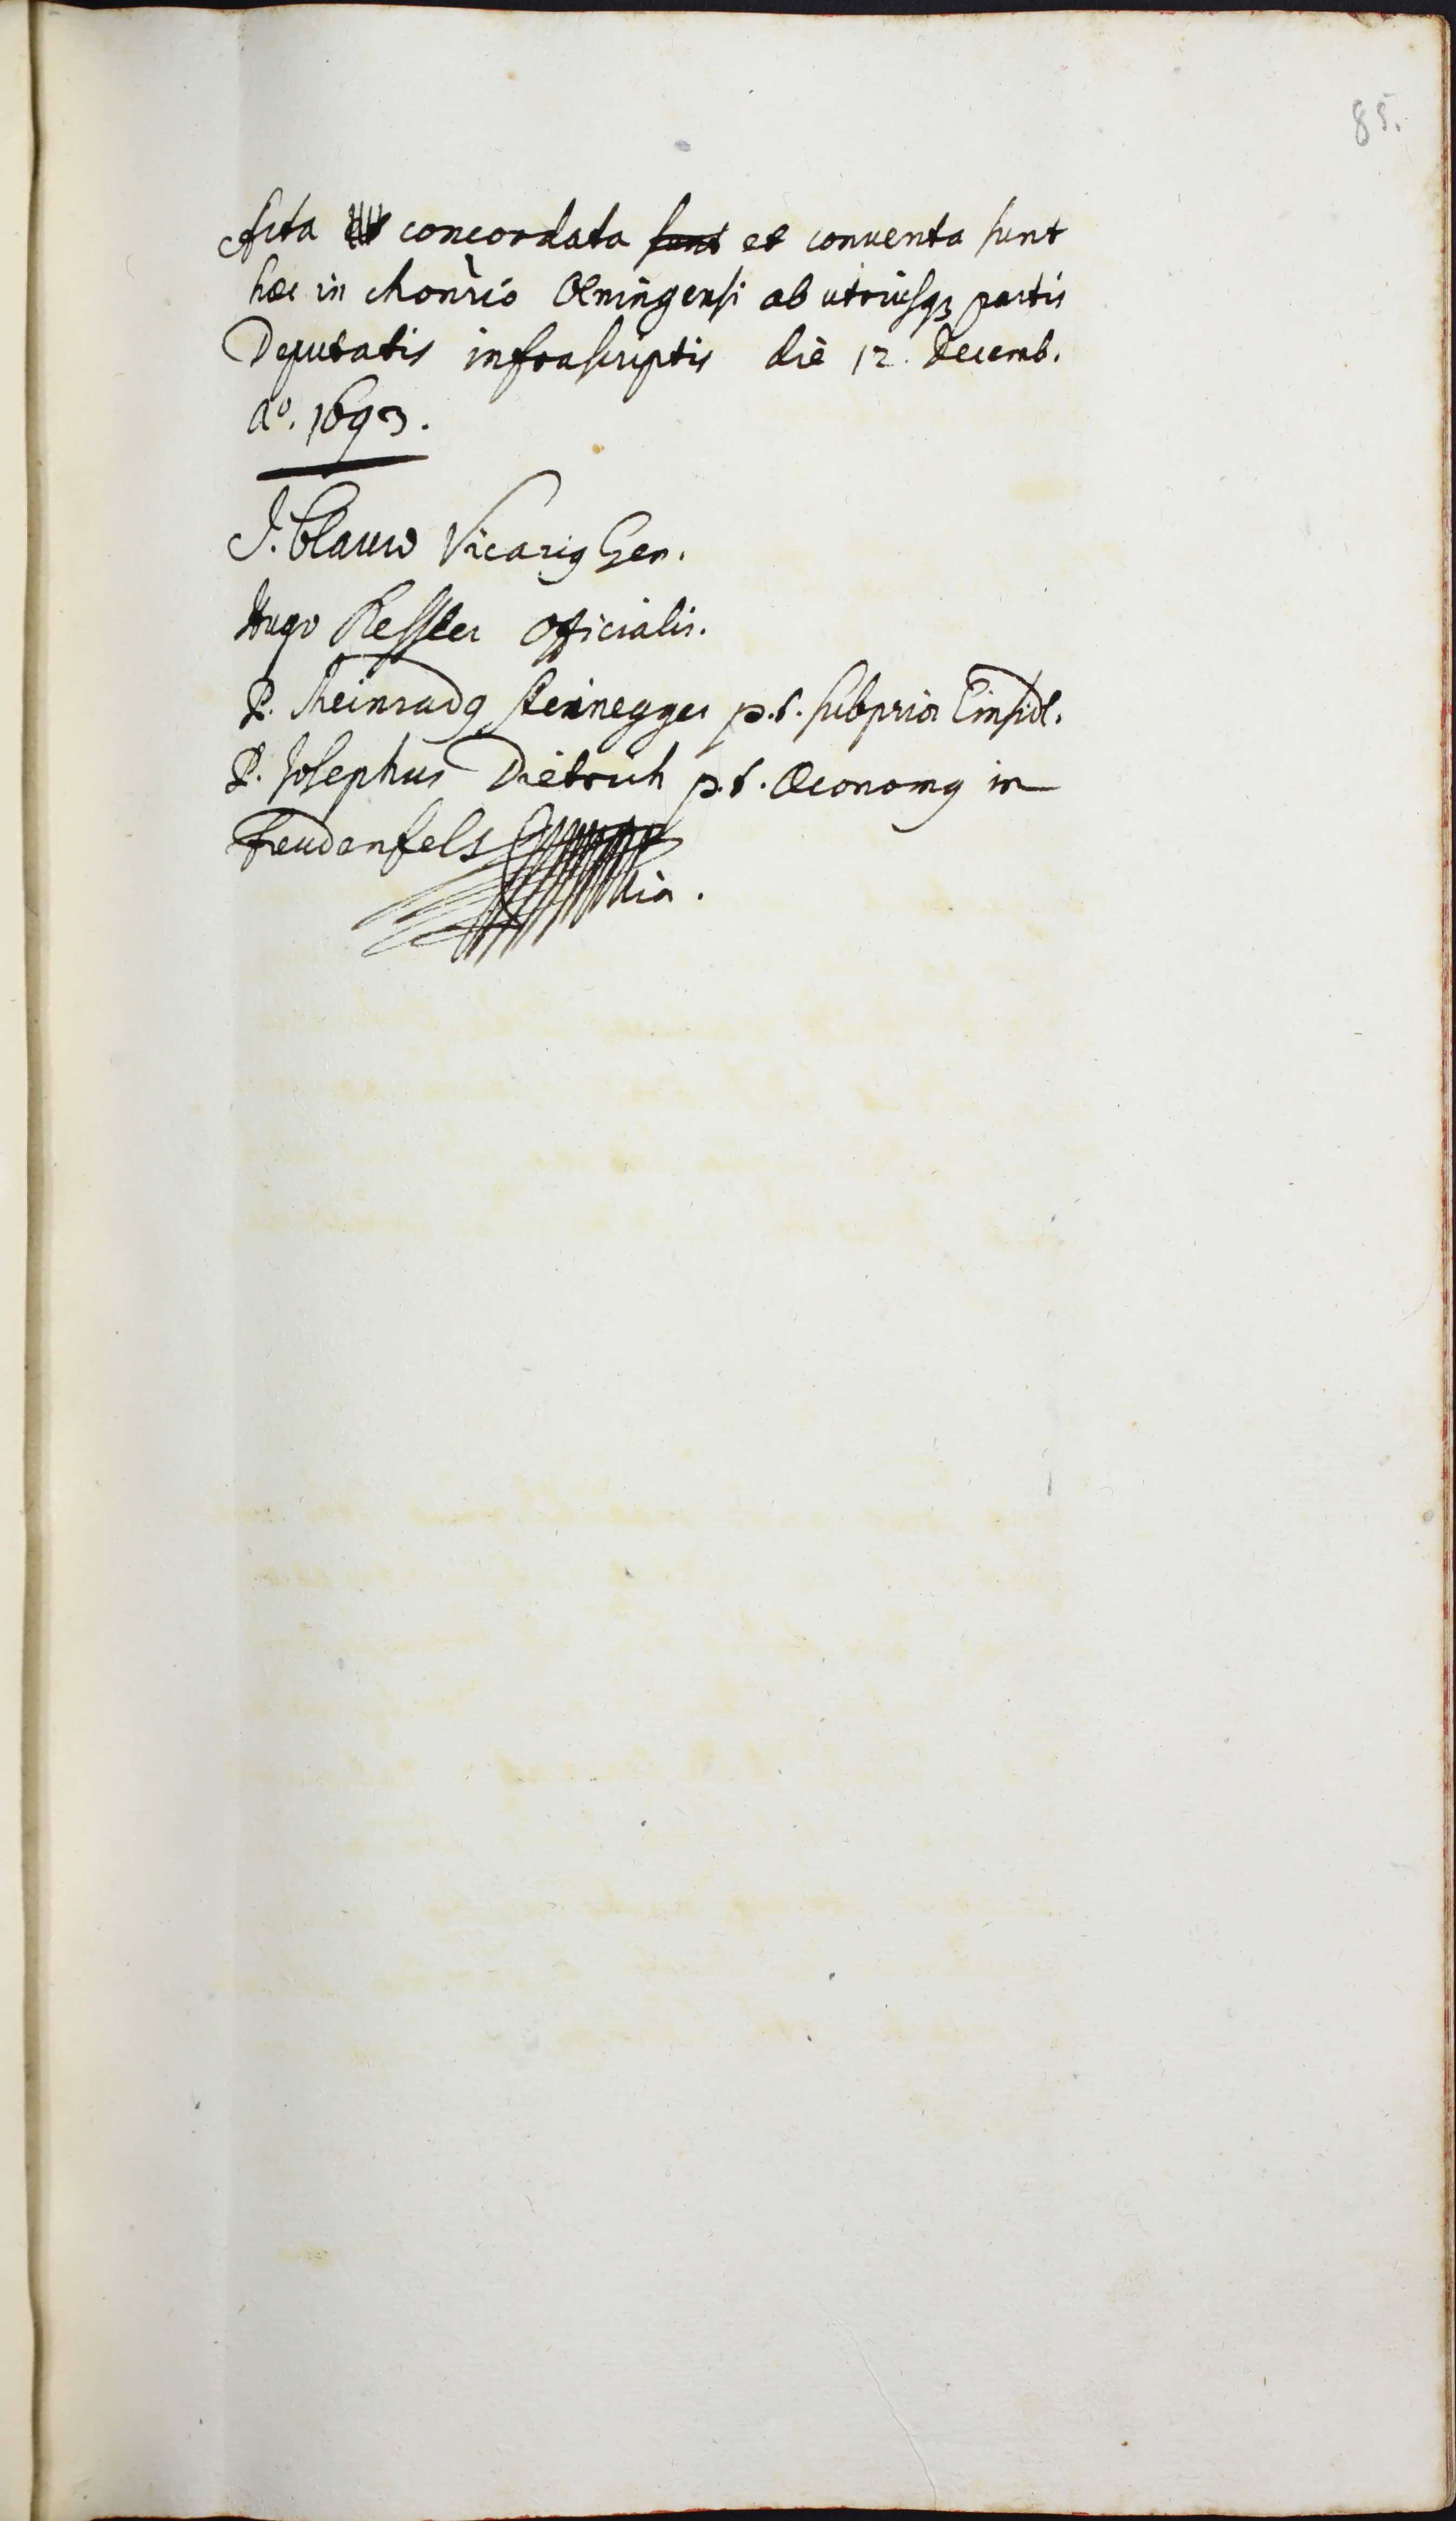 85.
Acta concordata sunt et conuenta sunt
hæc in Monrio Öeningensi ab utriusq3 partis
Deputatis infrascriptis die 12. Decemb.
Ao. 1693.
J. Blauw Vicariq Gen.
Hugo Kessler Officialis.
P. Meinradq Steinegger p.t. subprior Einsidl.
P. Josephus Dietrich p.t. Œconomq in
Freudenfels